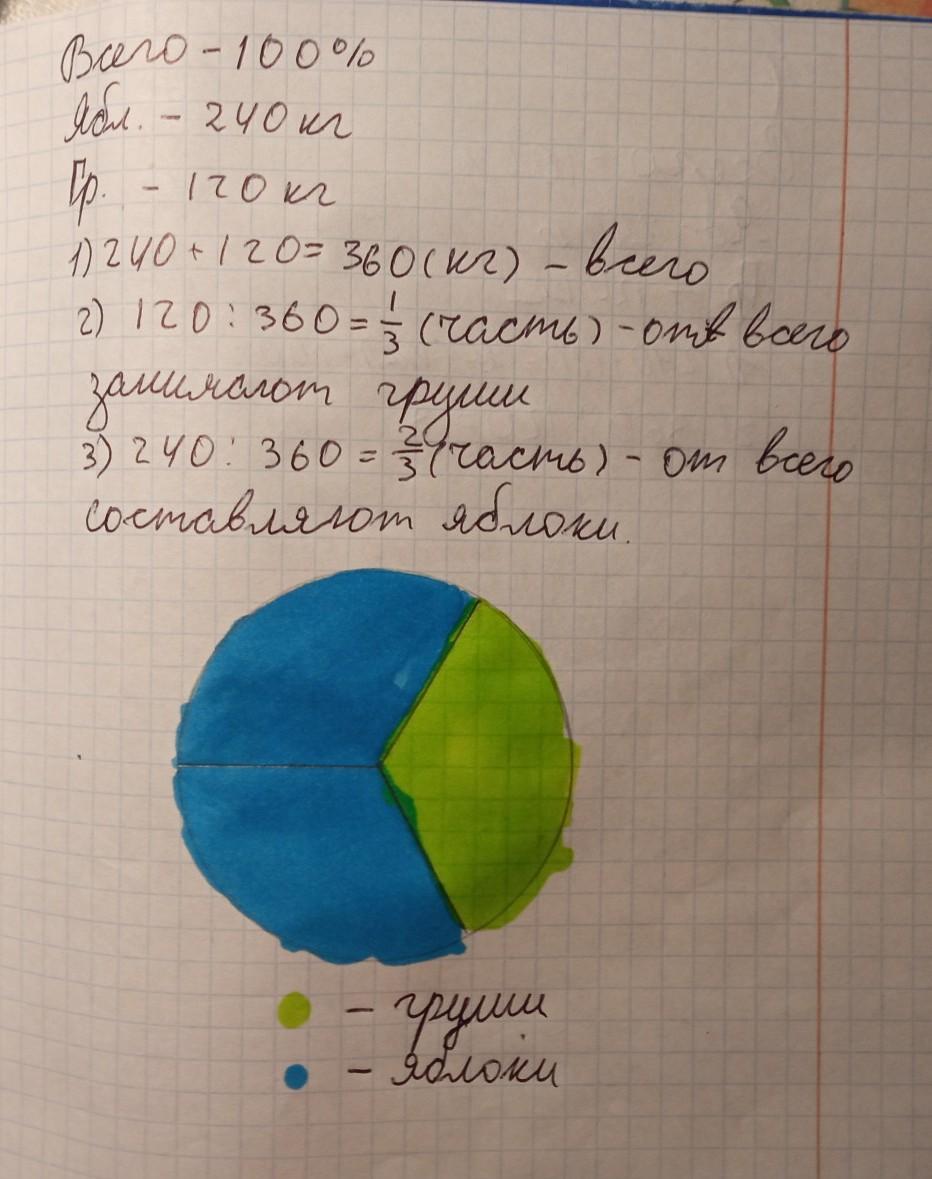 Всего - 100%
Ябл. - 240 кг
Гр. - 120 кг
1) 240 + 120 = 360 (кг) - всего
2) 120 : 360 = 1/3 (часть) - от всего
занимают груши
3) 240 : 360 = 2/3 (часть) - от всего
составляют яблоки.
- груши
- яблоки